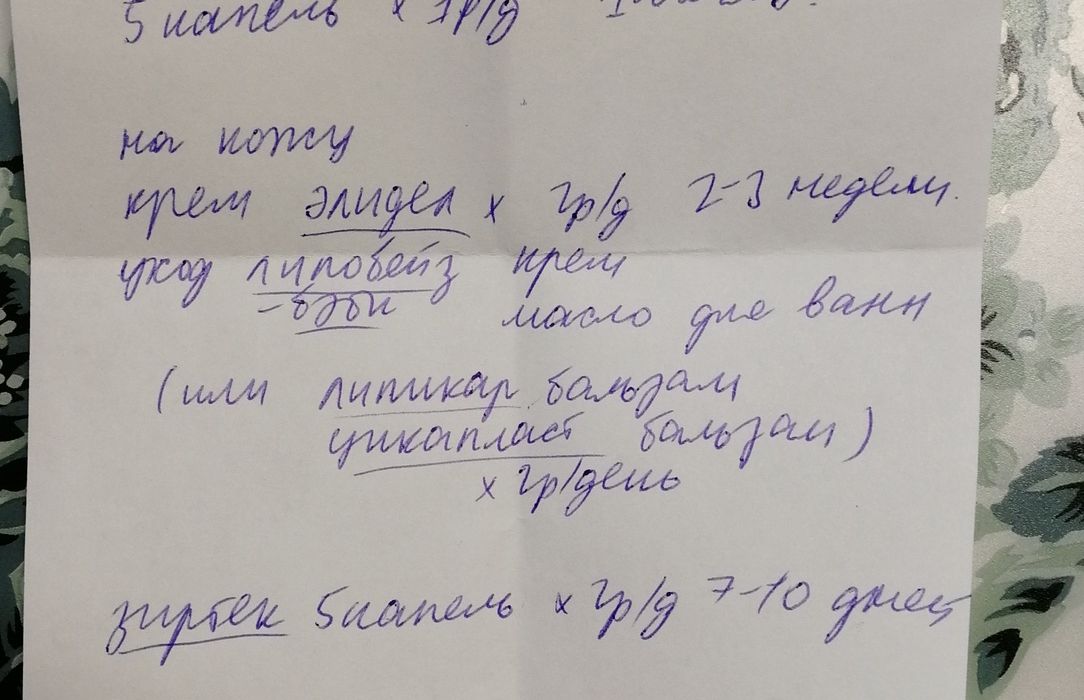 5 капель х 1р/д
на кожу
крем элидел х 2р/д 2-3 недели.
уход липобейз крем
-бэби масло для ванн
(или липикар бальзам
цикапласт бальзам)
х 2р/день
зиртек 5 капель х 2р/д 7-10 дней